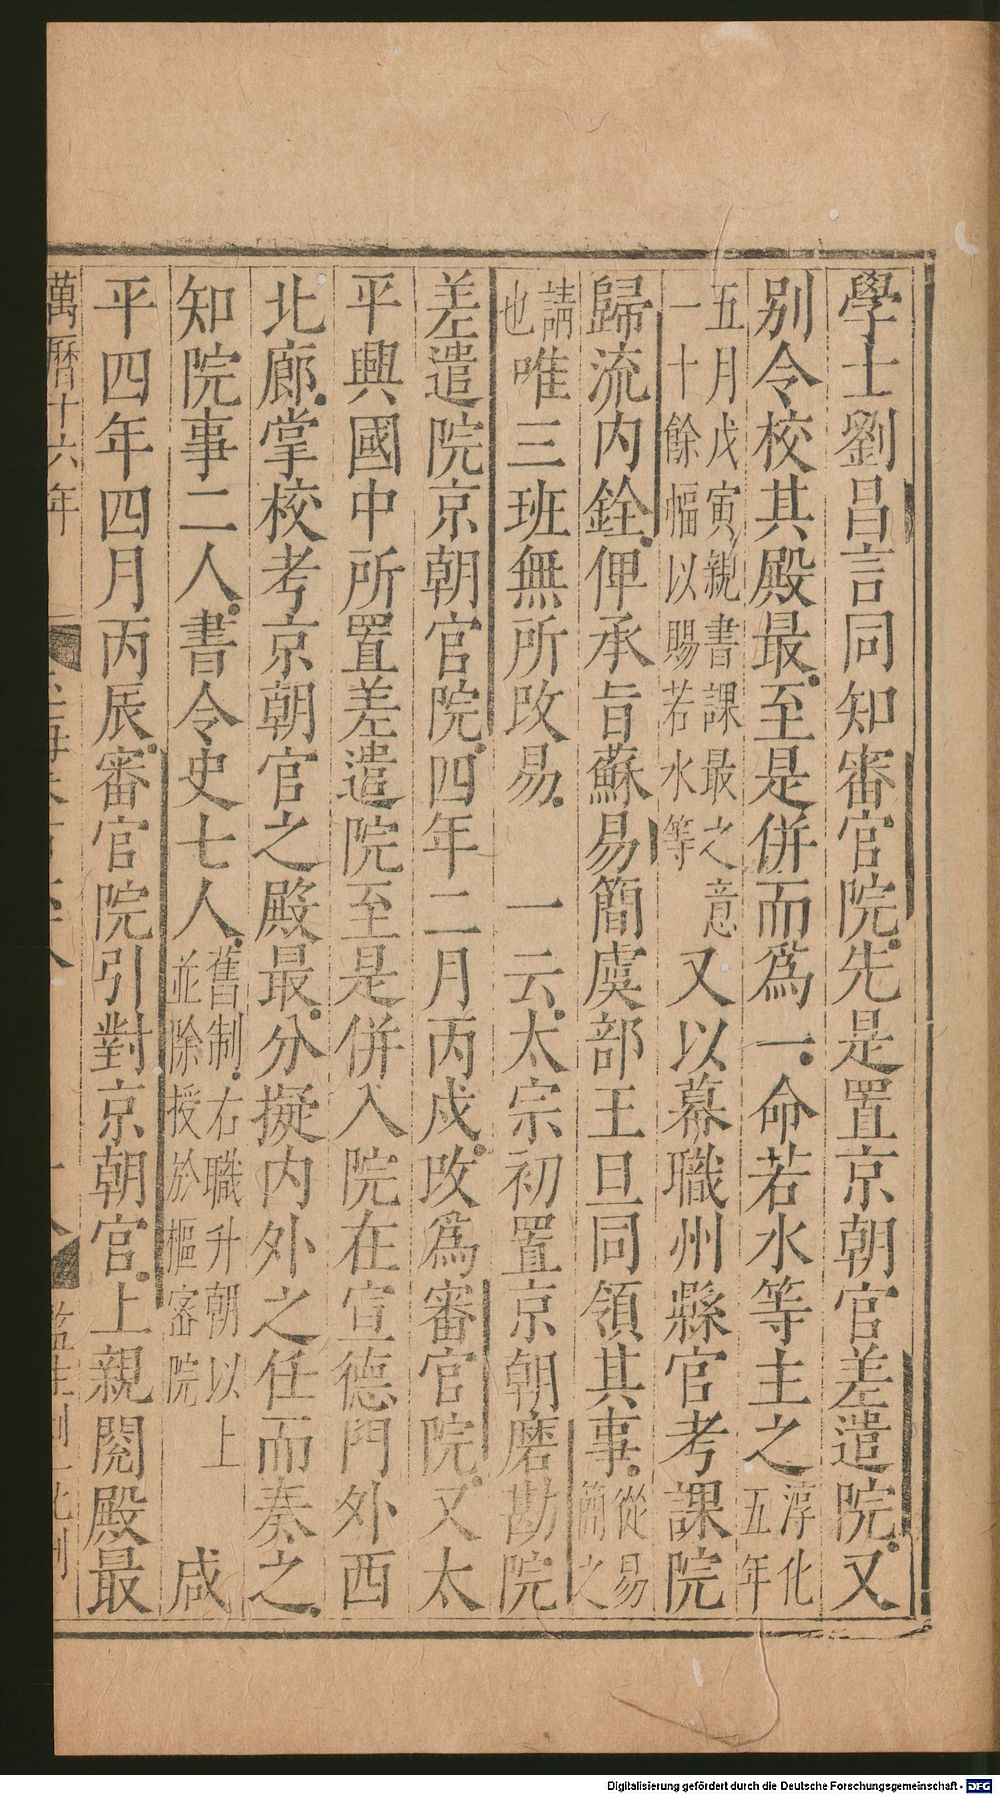 學士劉昌言同知審官院。先是置京朝官差遣院。又
别令校其殿最。至是併而爲一。命若水等主之淳化五年
五月戊寅親書課最之意一十餘幅以賜若水等又以幕職州縣官考課院
歸流内銓。俾承旨蘇易簡虞部王旦同領其事。從易簡之
請也唯三班無所改易。一云。太宗初置京朝磨勘院。
差遣院京朝官院。四年二月丙戌。改爲審官院。又太
平興國中所置差遣院至是併入院在宣德門外西
北廊。掌校考京朝官之殿最。分擬内外之任而奏之。
知院事二人。書令史七人。舊制。右職升朝以上並除授於樞密院咸
平四年四月丙辰。審官院引對京朝官。上親閲殿最
萬曆十六年
Digitalisierung gefördert durch die Deutsche Forschungsgemeinschaft - DFG